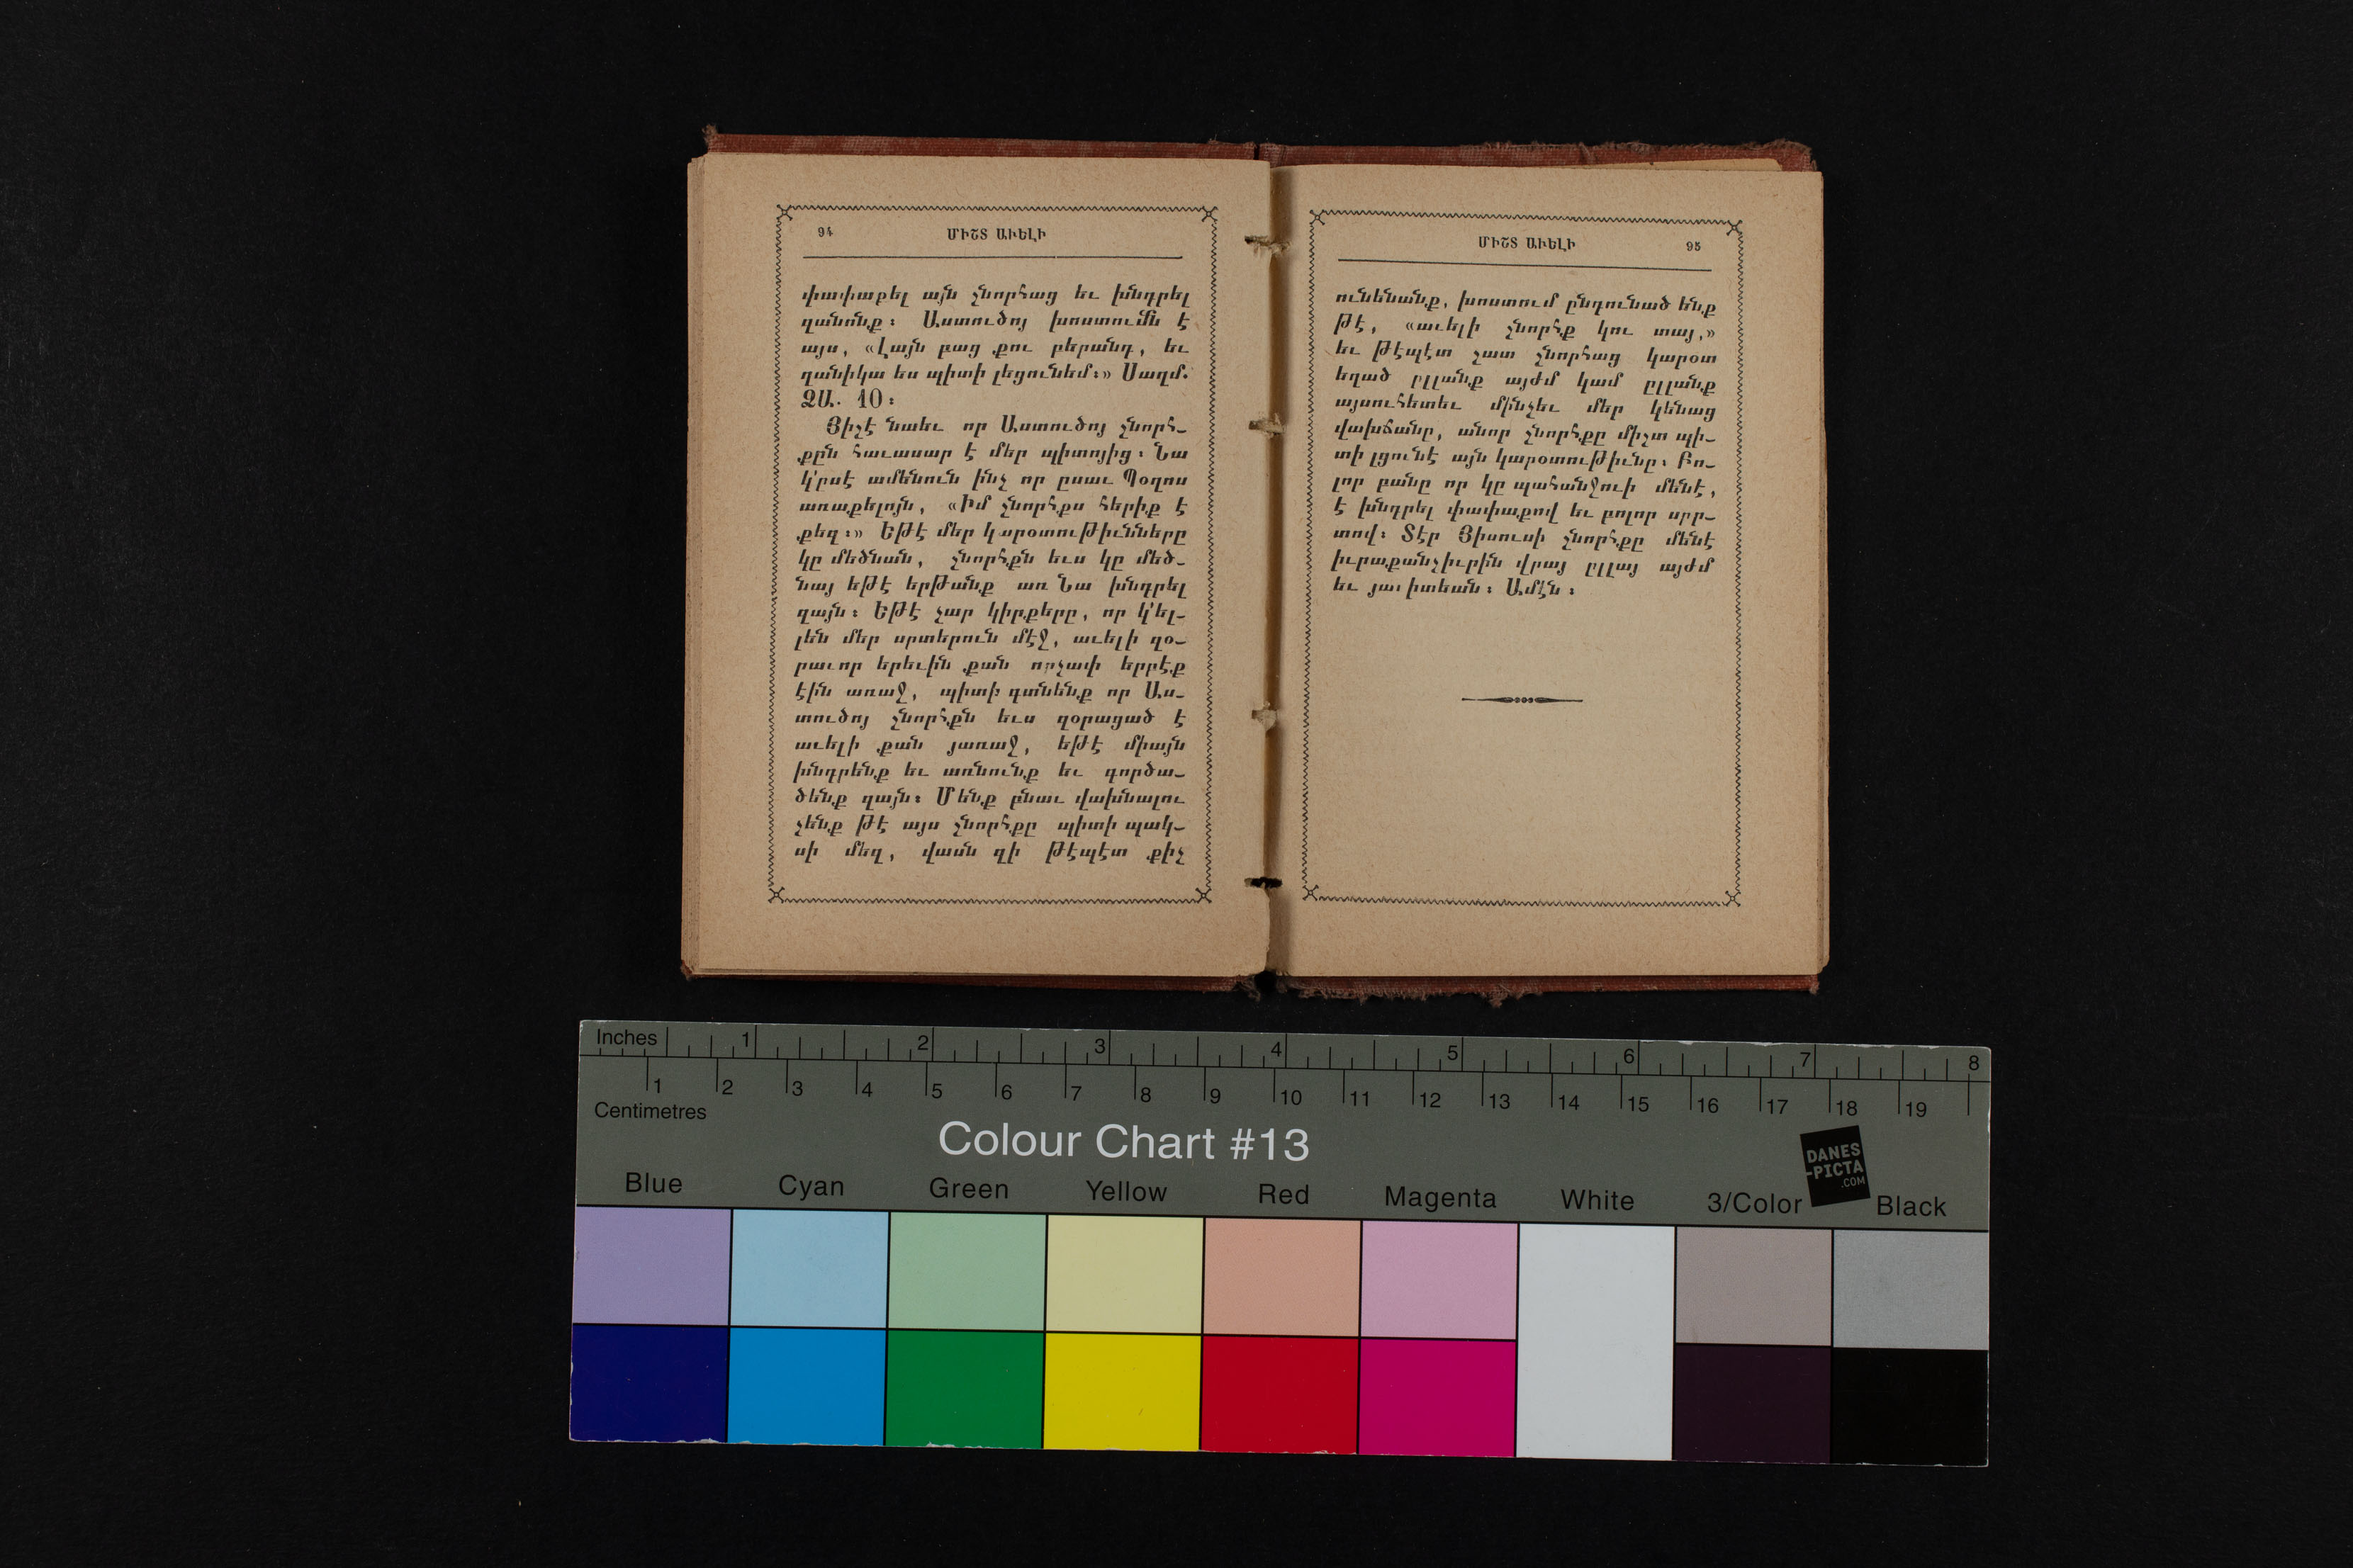 94 ՄԻՇՏ ԱՒԵԼԻ
փափաքել այն շնորհաց եւ խնդրել
զանոնք։ Աստուծոյ խոստումն է
այս, «Լայն բաց քու բերանդ, եւ
զանիկա ես պիտի լեցունեմ։» Սաղմ.
ՁԱ. 10։
Յիշէ նաեւ որ Աստուծոյ շնորհ-
քըն հաւասար է մեր պիտոյից։ Նա
կ'ըսէ ամենուն ինչ որ ըսաւ Պօղոս
առաքելոյն, «Իմ շնորհքս հերիք է
քեզ։» Եթէ մեր կարօտութիւնները
կը մեծնան, շնորհքն եւս կը մեծ-
նայ եթէ երթանք առ Նա խնդրել
զայն։ Եթէ չար կիրքերը, որ կ'ել-
լեն մեր սրտերուն մէջ, աւելի զօ-
րաւոր երեւին քան որչափ երբէք
էին առաջ, պիտի գտնենք որ Աս-
տուծոյ շնորհքն եւս զօրացած է
աւելի քան յառաջ, եթէ միայն
խնդրենք եւ առնունք եւ գործա-
ծենք զայն։ Մենք բնաւ վախնալու
չենք թէ այս շնորհքը պիտի պակ-
սի մեզ, վասն զի թէպէտ քիչ
ՄԻՇՏ ԱՒԵԼԻ 95
ունենանք, խոստում ընդունած ենք
թէ, «աւելի շնորհք կու տայ,»
եւ թէպէտ շատ շնորհաց կարօտ
եղած ըլլանք այժմ կամ ըլլանք
այսուհետեւ մինչեւ մեր կենաց
վախճանը, անոր շնորհքը միշտ պի-
տի լցունէ այն կարօտութիւնը։ Բո-
լոր բանը որ կը պահանջուի մենէ,
է խնդրել փափաքով եւ բոլոր սրր-
տով։ Տէր Յիսուսի շնորհքը մենէ
իւրաքանչիւրին վրայ ըլլայ այժմ
եւ յաւիտեան։ Ամէն։
Inches 1 2 3 4 5 6 7 8
1 2 3 4 5 6 7 8 9 10 11 12 13 14 15 16 17 18 19
Centimetres
Colour Chart #13
DANES
-PICTA
.COM
Blue Cyan Green Yellow Red Magenta White 3/Color Black